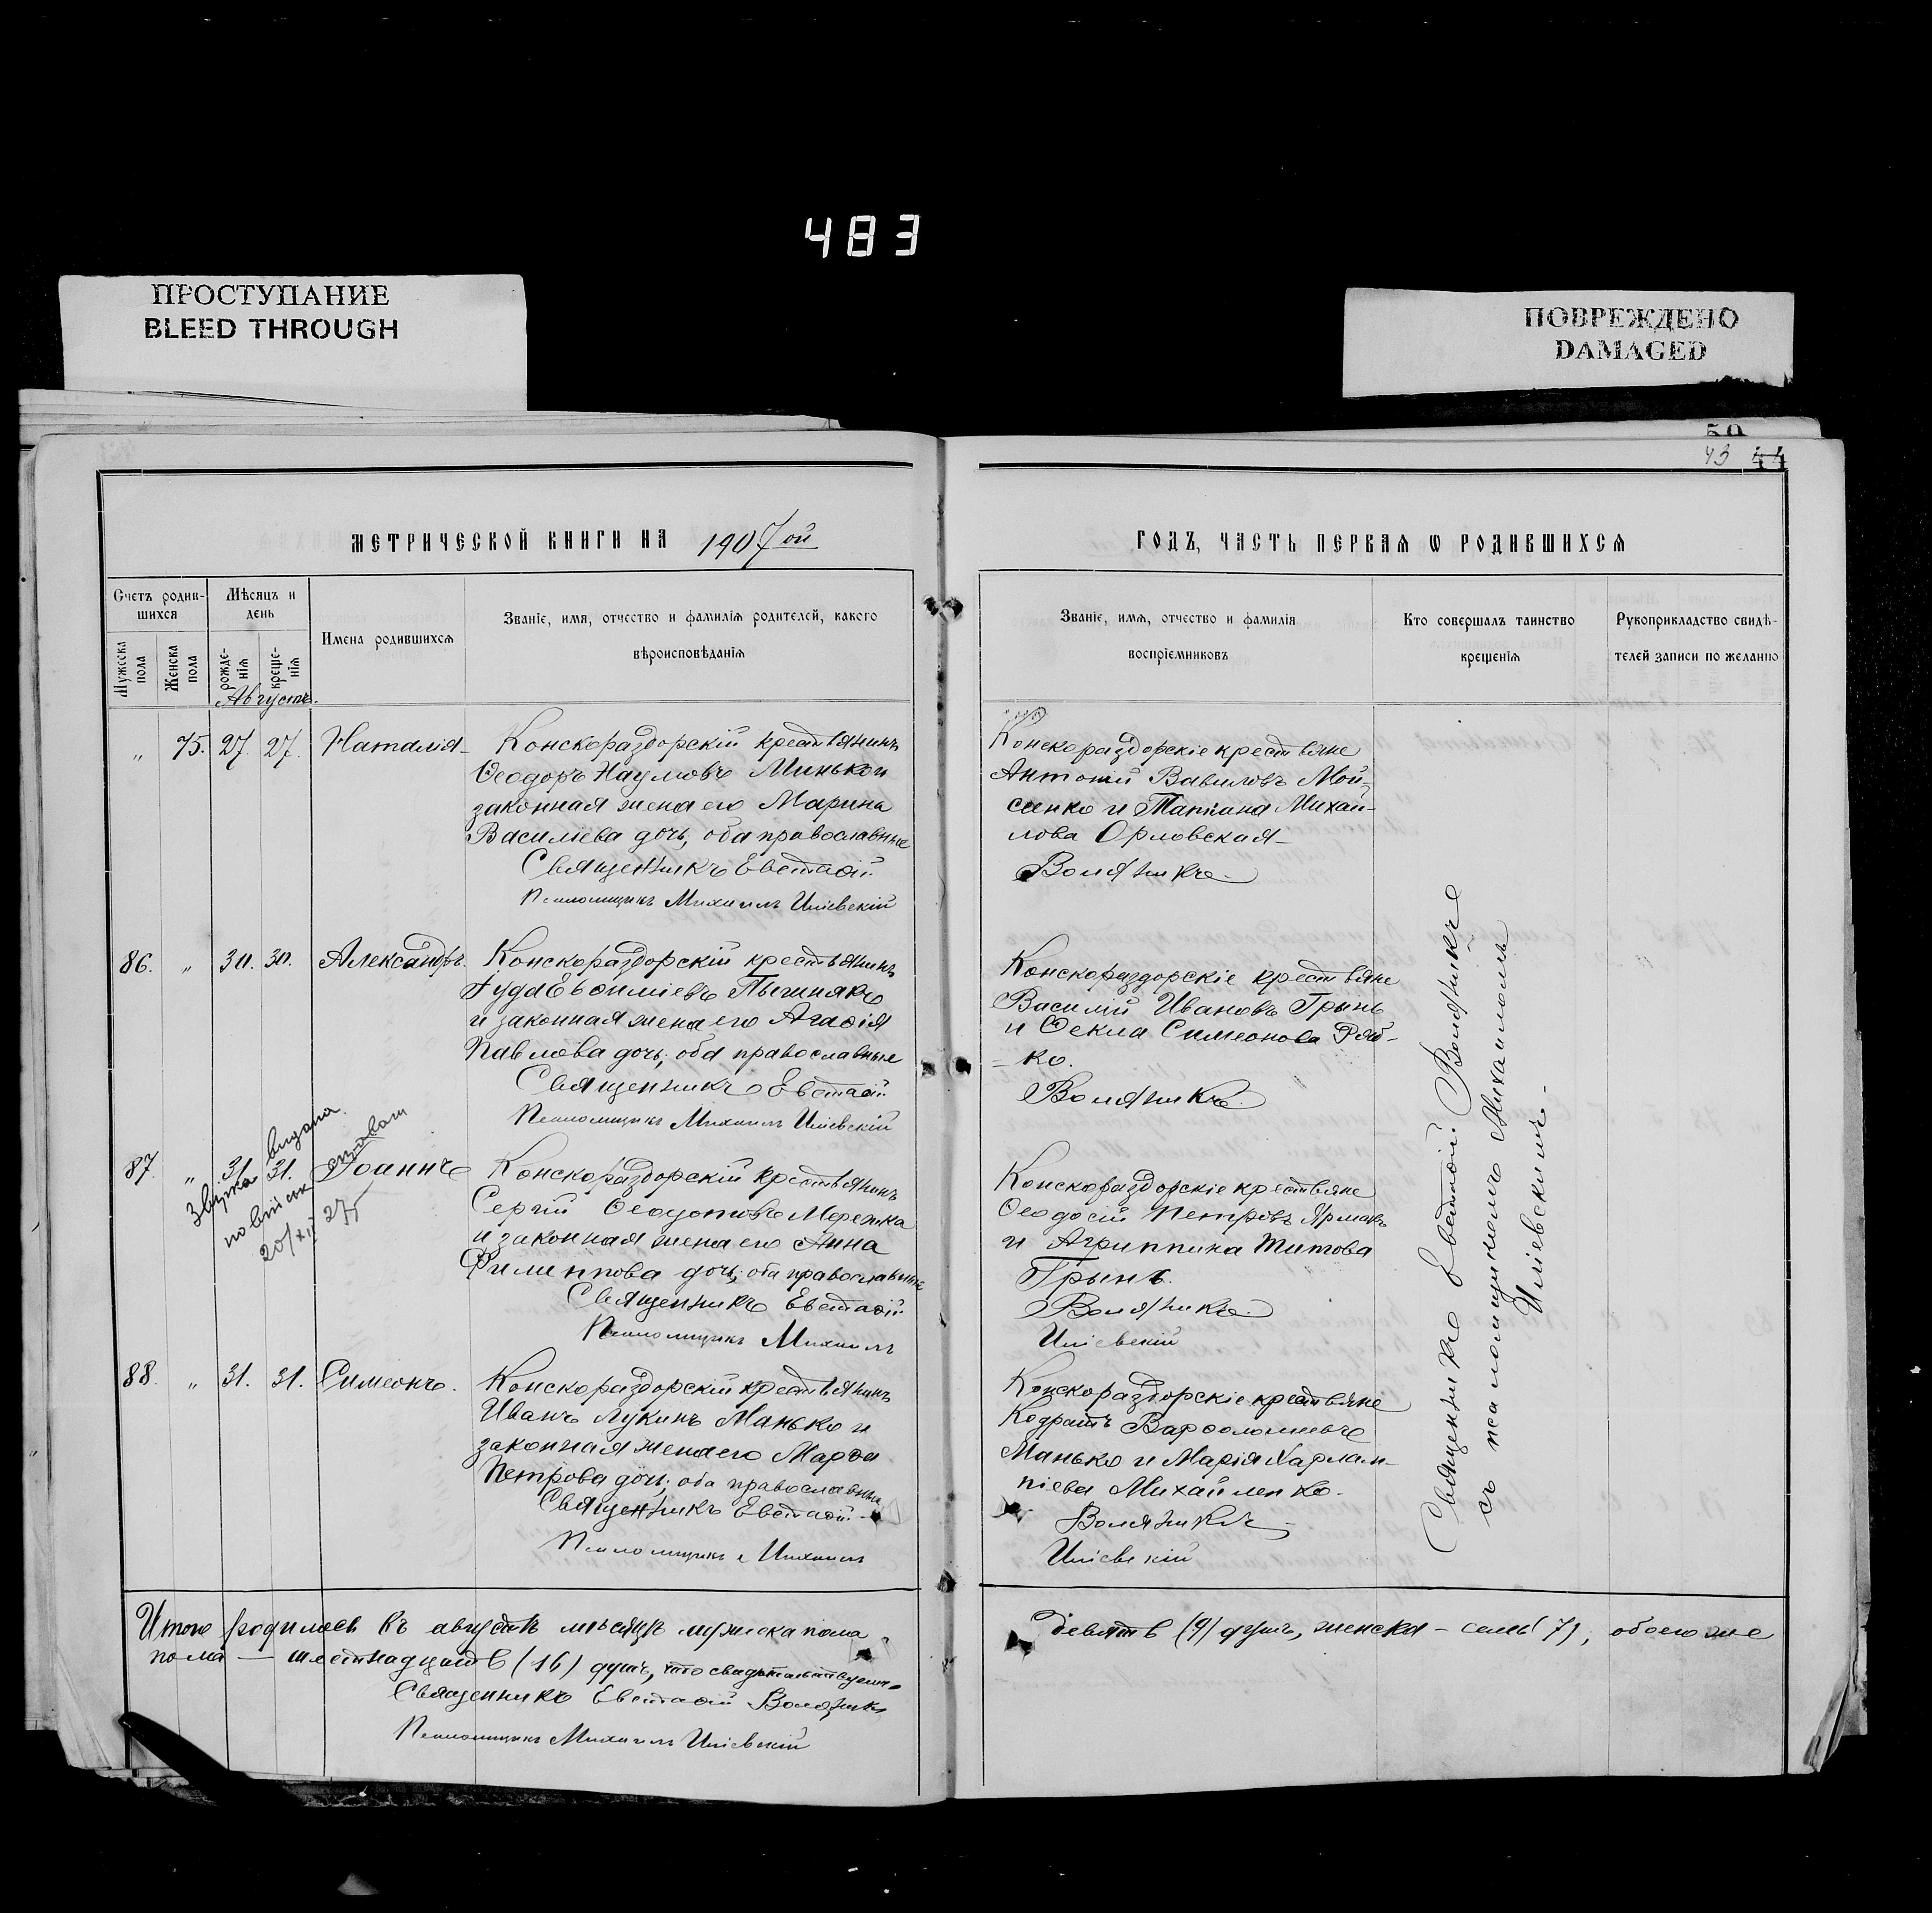 483
ПРОСТУПАНИЕ
BLEED THROUGH
ПОВРЕЖДЕНО
DAMAGED
50
43 44
МЕТРИЧЕСКОЙ КНИГИ НА 1907ой
ГОДЪ, ЧАСТЬ ПЕРВАЯ Ѡ РОДИВШИХСЯ
Счетъ родив-
шихся
Мужеска пола
Женска пола
Мѣсяцъ и
день
рожде-
нія
креще-
нія
Имена родившихся
Званіе, имя, отчество и фамилія родителей, какого
вѣроисповѣданія
Званіе, имя, отчество и фамилія
воспріемниковъ
Кто совершалъ таинство
крещенія
Рукоприкладство свидѣ-
телей записи по желанію
Августъ.
„ 75. 27. 27. Наталія
Конскораздорскій крестьянинъ
Ѳеодоръ Наумовъ Минько и
законная жена его Марина
Василіева дочь, оба православные
Священникъ Евстаѳій
Псаломщикъ Михаилъ Иліевскій
Конскораздорскіе крестьяне
Антоній Вавиловъ Мой-
сеенко и Татіана Михай-
лова Орловская
Воляникъ
86. „ 30. 30. Александръ.
Конскораздорскій крестьянинъ
Іуда Евѳиміевъ
и законная жена его Агаѳія
Павлова дочь, оба православные
Священникъ Евстаѳій
Псаломщикъ Михаилъ Иліевскій
Конскораздорскіе крестьяне
Василій Ивановъ Гринь
и Ѳекла Симеонова Ряб-
ко.
Воляникъ
87. „ 31. 31. Іоаннъ
видана
20/XII 27
Конскораздорскій крестьянинъ
Сергій Мережка
и законная жена его Анна
Филиппова дочь, оба православные
Священникъ Евстаѳій
Псаломщикъ Михаилъ
Конскораздорскіе крестьяне
Ѳеодосій Петровъ Ярмакъ
и Агриппина Титова
Гринь.
Воляникъ
Иліевскій
88. „ 31. 31. Симеонъ.
Конскораздорскій крестьянинъ
Иванъ Лукинъ Манько и
законная жена его Марѳа
Петрова дочь, оба православные
Священникъ Евстаѳій
Псаломщикъ Михаилъ
Конскораздорскіе крестьяне
Кодратъ Варѳоломеевъ
Манько и Марія Харлам-
піева Михайленко.
Воляникъ
Иліевскій
Священникъ Евстаѳій Воляникъ
съ псаломщикомъ Михаиломъ
Иліевскимъ
Итого родилось въ августѣ мѣсяцѣ мужска пола девять (9) душъ, женска - семь (7), обоего же
пола — шестнадцать (16) душъ, что свидѣтельствуемъ
Священникъ Евстаѳій Воляникъ
Псаломщикъ Михаилъ Иліевскій